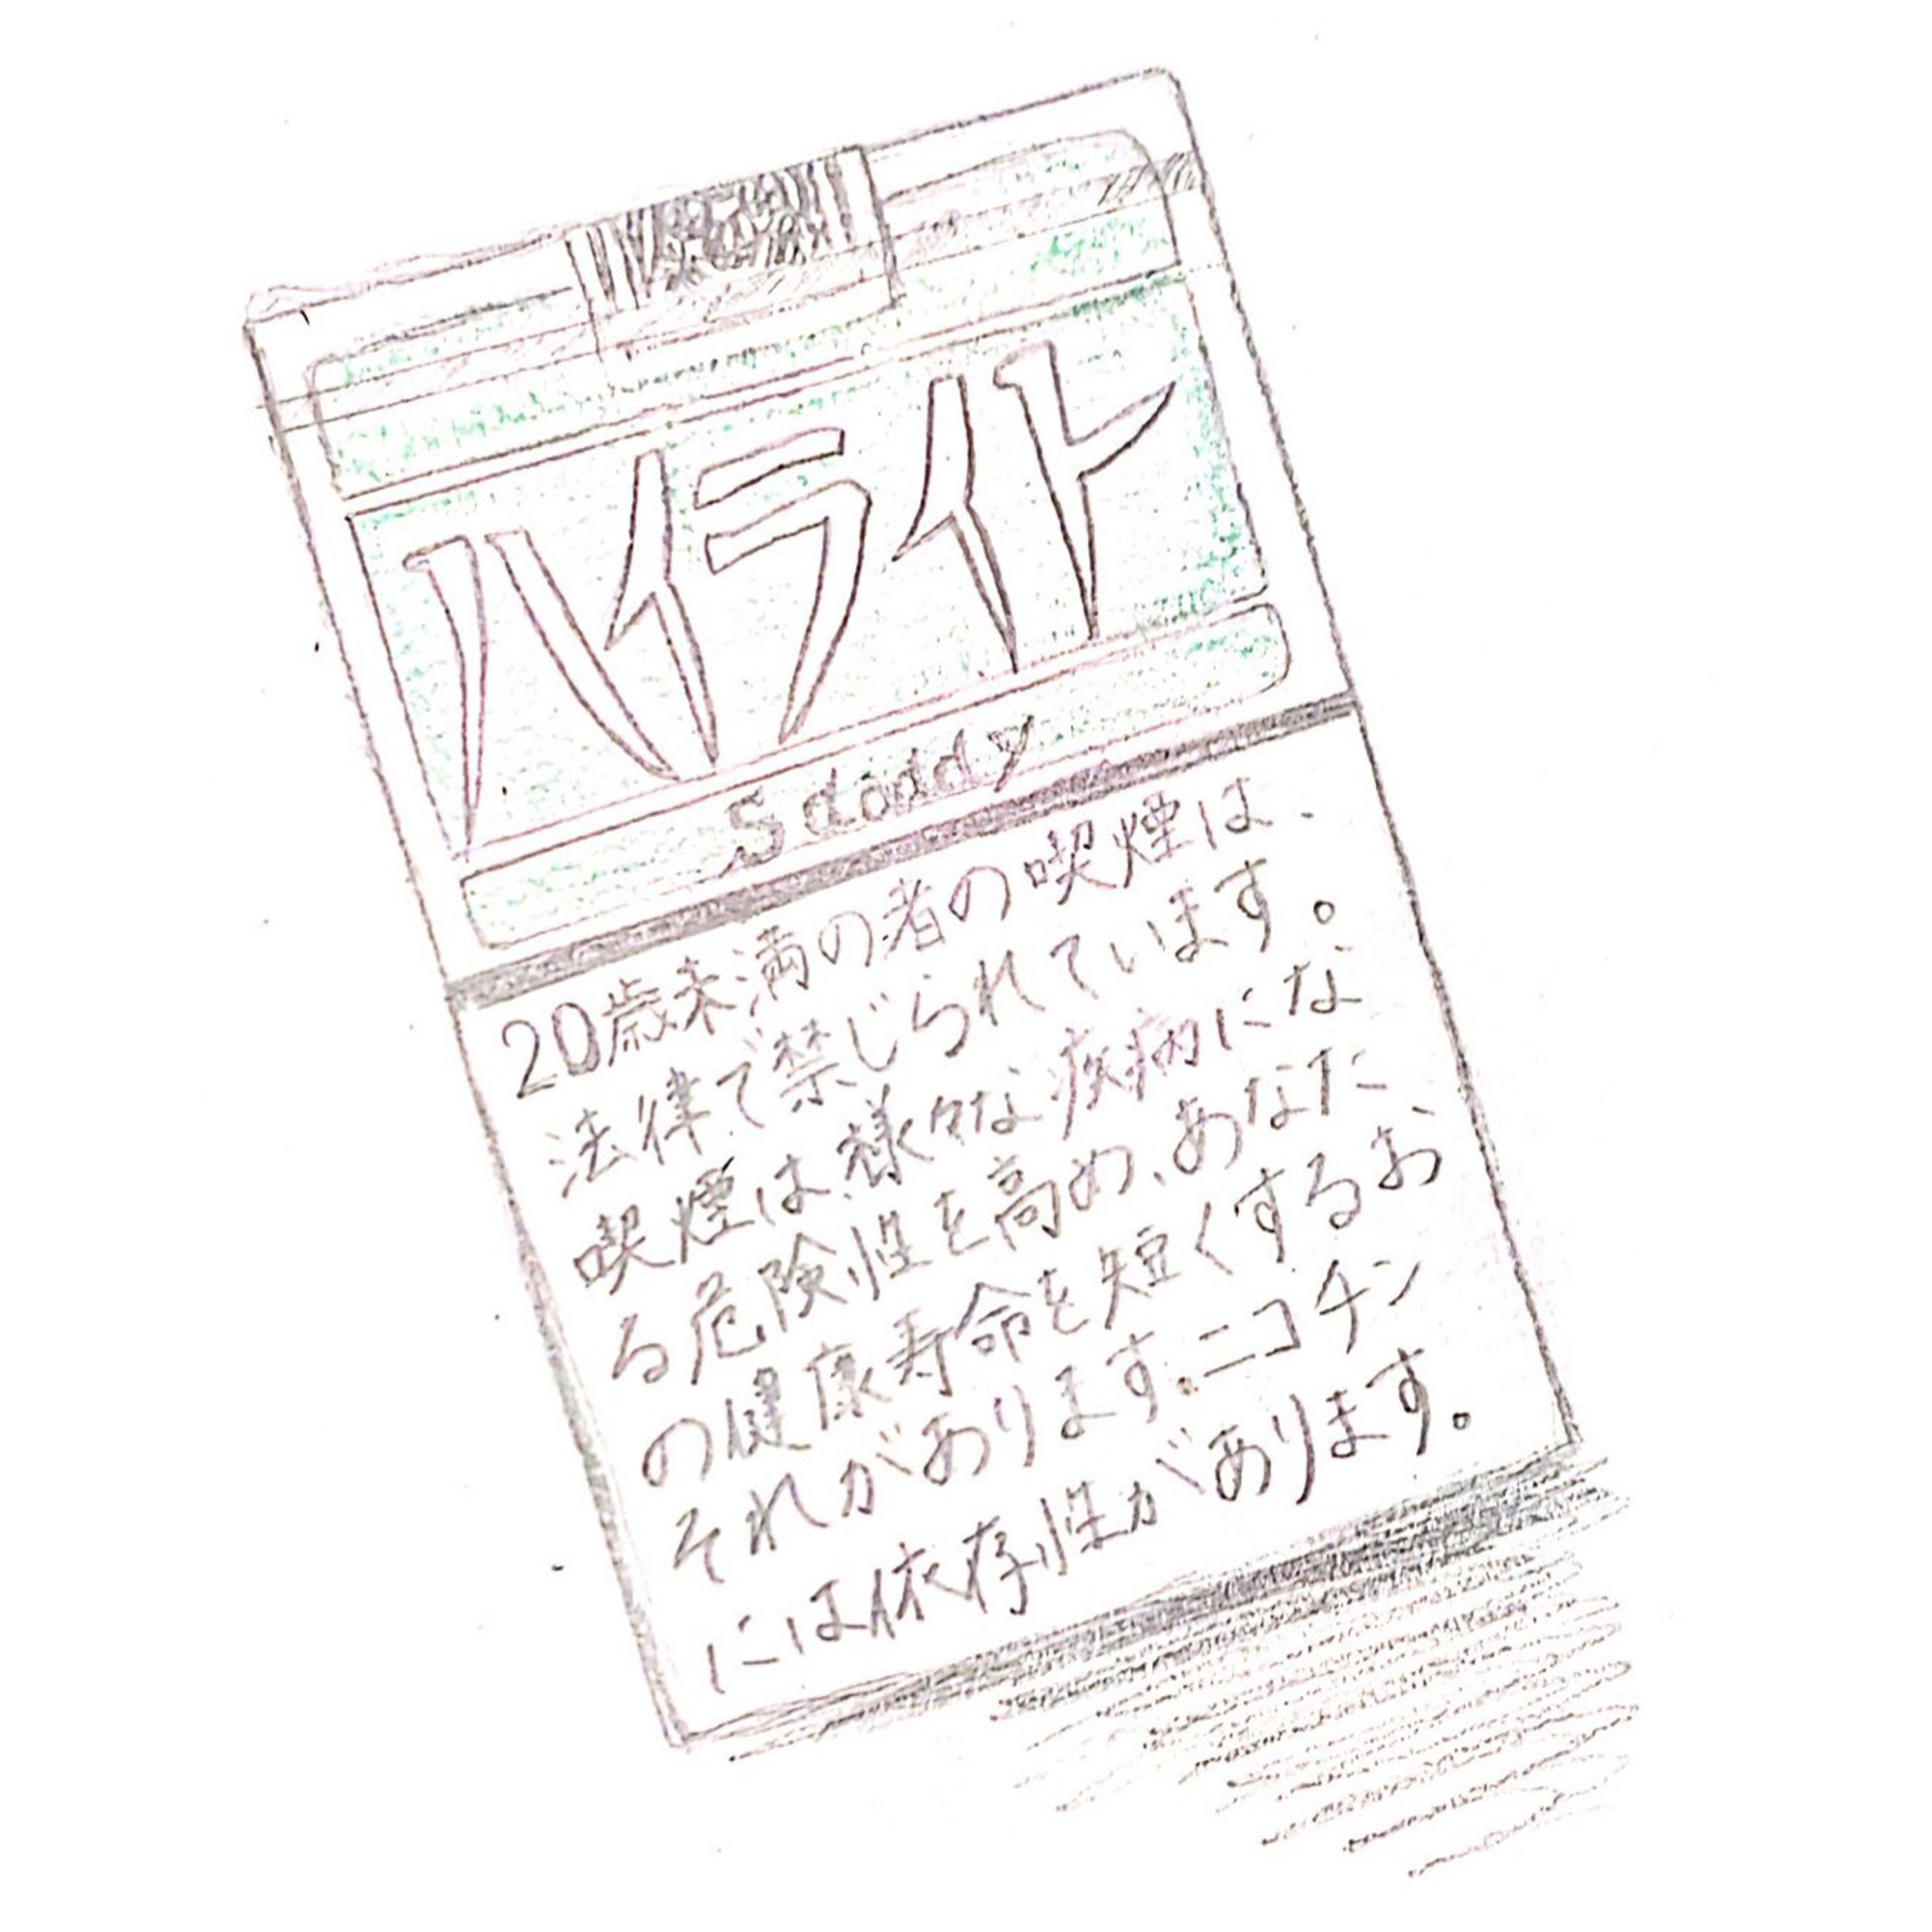 ハイライト
S daddy
20歳未満の者の喫煙は、
法律で禁じられています。
喫煙は、様々な疾病にな
る危険性を高め、あなた
の健康寿命を短くするお
それがあります。ニコチン
には依存性があります。